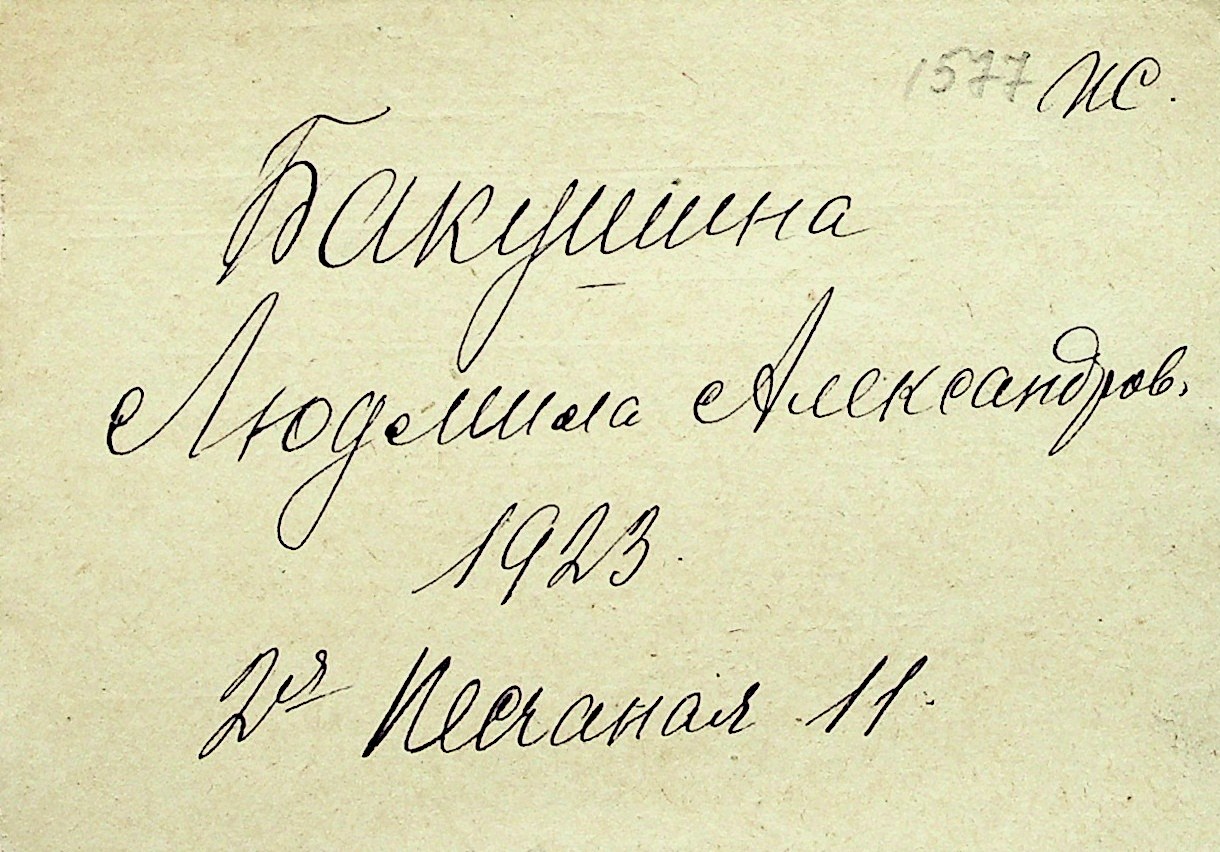 1577 ИС.
Бакушина
Людмила Александров.
1923.
2я Песчаная 11.